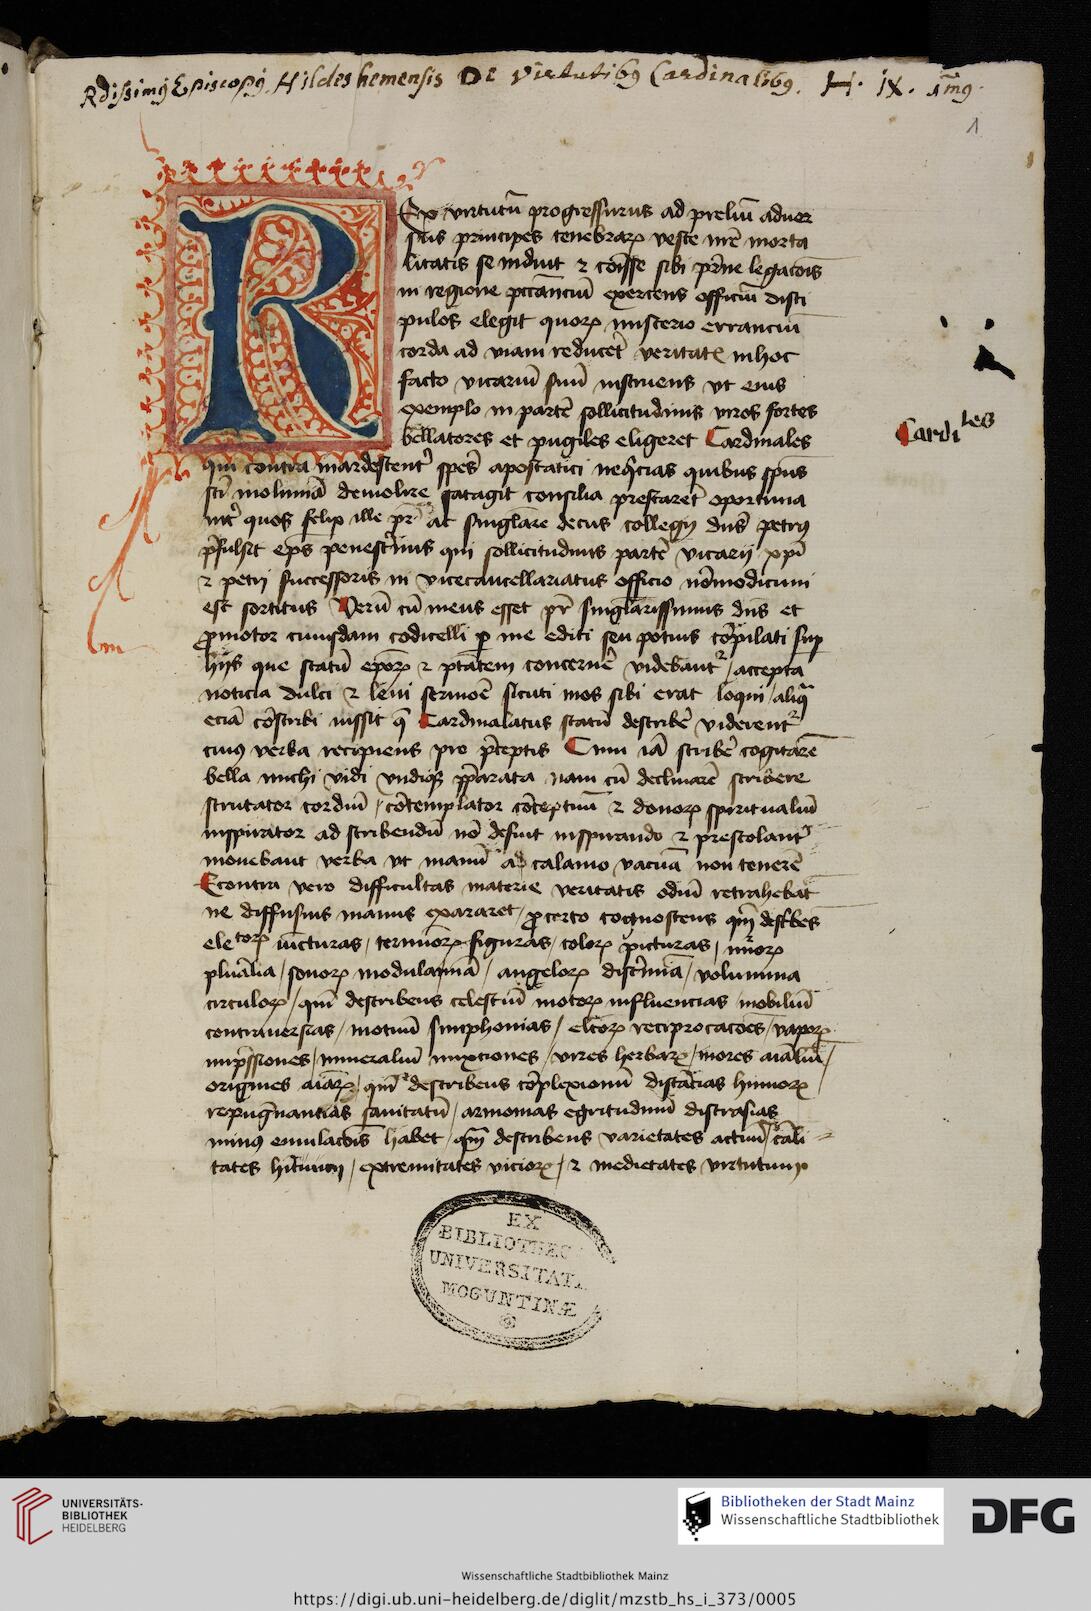 Rdissimi Episcopi Hildeshemensis De Virtutibꝰ Cardinalibꝰ. H. IX. 1mꝰ
1
Rex virtutū progressurus ad preliū aduer
sus principes tenebraꝝ veste nrē morta
litatis se induit ⁊ cōisse sibi pr̄ne legacōis
in regione pccānciū exercens officiū disci
pulos elegit quoꝝ misterio erranciū
corda ad viam reducet̉ veritatꝭ inhoc
facto vicariū suū instruens vt eius
exemplo in partē sollicitudinis viros fortes
bellatores et pugiles eligeret Cardinales
Cardiles
qui contra inardescent̉ spes̉ apostatici neq̄cias quibus spūs
sc̄i molimīa demolire satagit consilia prestaret̉ oportuna
int̉ quos felix ille pr̄ ac singlāre decus collegij dn̄s petrꝰ
p̄fulsit ep̄s penestr̉inus qui sollicitudinis partē vicarij xp̄i
⁊ petri successoris in vicecancellariatus officio nōmodicum
est sortitus Verū cū meus esset pr̄ singlārissimus dn̄s et
ꝓmotor cuiusdam codicelli ꝑ me editi seu potius cōpilati suꝑ
hijs que statū epōꝝ ⁊ ptātem concernē videbant᷑ / accepta
noticia dulci ⁊ leui sermōe sicuti mos sibi erat loqui / aliqua
eciā cōscribi iussit q̄ Cardinalatus statū describē viderent᷑
cuius verba recipiens pro p̄ceptis Cum iā scribē cogitarē
bella michi vidi vndiqꝫ p̄parata nam cū declinarē scribere
scrutator cordiū / cōtemplator cōceptuū ⁊ donoꝝ spiritualiū
inspirator ad scribendū nō desinit inspirando ⁊ prestolant᷑
monebant verba vt manū a calamo vacuā non tenerē
Econtra vero difficultas materie veritatis odiū retrahebat
ne diffusius manus exararet / ꝓcerto cognoscens qm̄ desc̄bēs
eletorꝝ iūcturas / terminoꝝ figuras / coloꝝ picturas / nūoꝝ
pluālia / sonoꝝ modulamīa / angeloꝝ discr̉mīa / volumina
circuloꝝ / qm̄ describens celestiū motoꝝ influencias mobiliū
contrauersias / motuū simphonias / eltōꝝ reciprocacōes / vaporꝝ
imp̄ssiones / mineraliū mixtiones / vires herbaꝝ / mores aīaliū /
origines aīaꝝ / qm̄ describens cōplexionū distācias humoꝝ
repuḡnantias sanitatū / armonias egritudinū discrasias
minꝰ emulacōis habet / qm̄ describens varietates actuū / cāli
tates hītuum / extremitates vicioꝝ / ⁊ medietates virtutum
EX
BIBLIOTHEC
UNIVERSITAT
MOGUNTINÆ
UNIVERSITÄTS-
BIBLIOTHEK
HEIDELBERG
Bibliotheken der Stadt Mainz
Wissenschaftliche Stadtbibliothek
DFG
Wissenschaftliche Stadtbibliothek Mainz
https://digi.ub.uni-heidelberg.de/diglit/mzstb_hs_i_373/0005